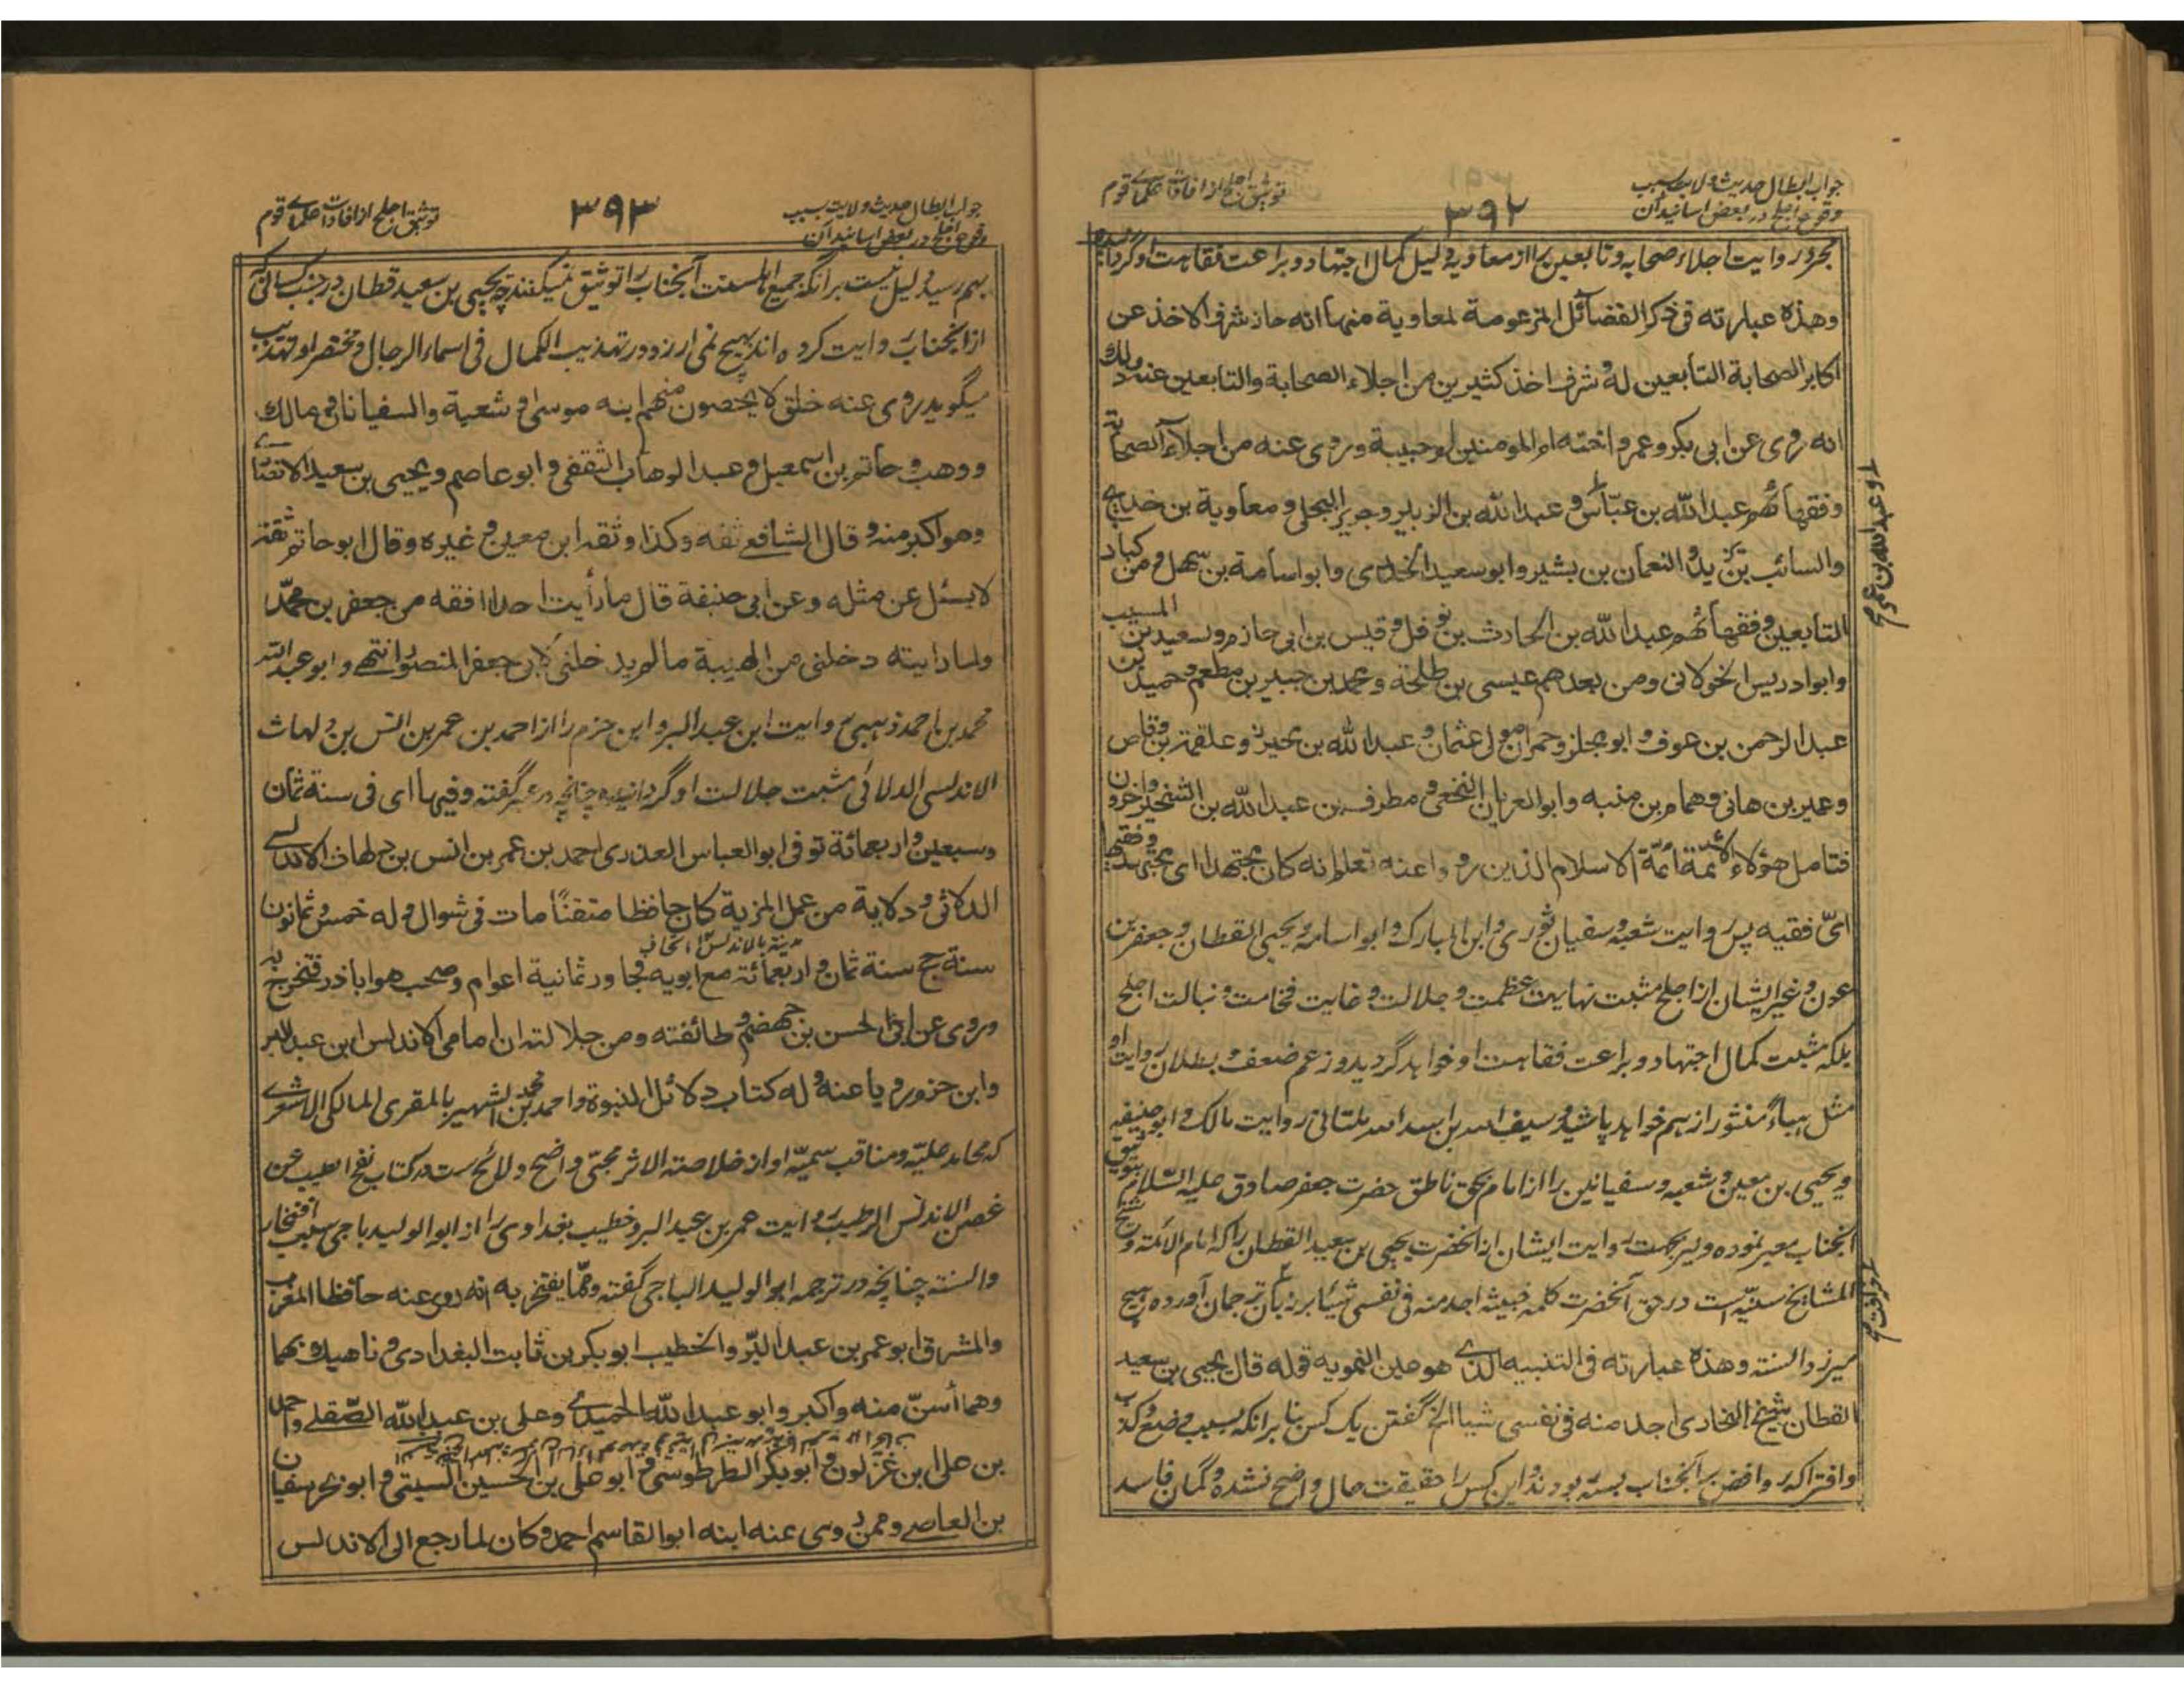 جواب ابطال حدیث ولایت بسبب
وقوع اجلح در بعض اسانید آن
۳۹۲
توثیق اجلح از افادات علمای قوم
بجرد روایت اجلاء صحابه و تابعین را از معاویه دلیل کمال اجتهاد و براعت فقاهت او گردانیده
وهذه عبارته فی ذکر الفضائل المزعومة لمعاویة منها انه حاز شرف الاخذ عن
اکابر الصحابة التابعین له و شرف اخذ کثیرین من اجلاء الصحابة والتابعین عنه وذلك
انه روی عن ابی بکر و عمر و اخته ام المومنین ام حبیبة و روی عنه من اجلاء الصحابة
وفقهائهم عبد الله بن عباس و عبد الله بن الزبیر وجریر البجلی و معاویة بن خدیج
و عبد الله بن عمر
والسائب بن یزید والنعمان بن بشیر وابو سعید الخدری وابو اسامة بن سهل و من کبار
التابعین وفقهائهم عبد الله بن الحارث بن نوفل و قیس بن ابی حازم وسعید بن المسیب
وابو ادریس الخولانی ومن بعدهم عیسی بن طلحة و محمد بن جبیر بن مطعم وحمید بن
عبد الرحمن بن عوف و ابو مجلز وحمران مولی عثمان و عبد الله بن محیریز وعلقمة بن وقاص
وعمیر بن هانی وهمام بن منبه وابو العریان النخعی و مطرف بن عبد الله بن الشخیر واخرون
فتامل هؤلاء الائمة ائمة الاسلام الذین رووا عنه تعلم انه کان مجتهدا ای مجتهد وفقیها
ای فقیه پس روایت شعبه و سفیان ثوری و ابن المبارک و ابو اسامه و یحیی القطان و جعفر بن
عون و غیر ایشان از اجلح مثبت نهایت عظمت و جلالت و غایت فخامت و نبالت اجلح
بلکه مثبت کمال اجتهاد و براعت فقاهت او خواهد گردید و زعم ضعف و بطلان روایت او
مثل هباء منثور از هم خواهد پاشید و سیف الله بن اسد الله ملتانی روایت مالک و ابو حنیفه
ویحیی بن معین و شعبه و سفیانین را از امام بحق ناطق حضرت جعفر صادق علیه السلام بتوثیق
آنجناب معبر نموده و بر بجهت روایت ایشان از آنحضرت یحیی بن سعید القطان را که امام الائمة و شیخ
المشایخ سنیه است در حق آنحضرت کلمه خبیثه اجد منه فی نفسی شیئا بر زبان ترجمان آورده بهیچ
میرزد السنة وهذه عبارته فی التنبیه الذی هو عین التمویه قوله قال یحیی بن سعید
القطان شیخ البخاری اجد منه فی نفسی شیئا الخ گفتن یک کس بنا برانکه بسبب وضع و کذب
وافترا که روافض بر آنجناب بسته بودند این کس را حقیقت حال واضح نشده و گمان فاسد
جواب ابطال حدیث ولایت بسبب
وقوع اجلح در بعض اسانید آن
۳۹۳
توثیق اجلح از افادات علمای قوم
بهم رسید دلیل نیست بر آنکه جمیع اهلسنت آنجناب را توثیق نمیکنند چه یحیی بن سعید قطان در جنب کسانی که
از آنجناب روایت کرده اند بهیچ نمی ارزد و در تهذیب الکمال فی اسماء الرجال و مختصر او تهذیب
میگوید روی عنه خلق لا یحصون منهم ابنه موسی و شعبة والسفیانان و مالك
ووهب وحاتم بن اسمعیل وعبد الوهاب الثقفی و ابو عاصم و یحیی بن سعید الانصاری
وهو اکبر منه و قال الشافعی ثقه وکذا وثقه ابن معین و غیره وقال ابو حاتم ثقة
لا یسئل عن مثله وعن ابی حنیفة قال ما رأیت احدا افقه من جعفر بن محمد
ولما رایته دخلنی من الهیبة ما لم یدخلنی لابی جعفر المنصور انتهی و ابو عبد الله
محمد بن احمد ذهبی روایت ابن عبد البر و ابن حزم را از احمد بن عمر بن انس بن دلهاث
الاندلسی الدلائی مثبت جلالت او گردانیده چنانچه در عبر گفته وفیها ای فی سنة ثمان
وسبعین واربعمائة توفی ابو العباس العذری احمد بن عمر بن انس بن دلهاث الاندلسی
الدلائی و دلایة من عمل المریة کان حافظا متقنا مات فی شوال وله خمس وثمانون
سنة حج سنة ثمان واربعمائة مع ابویه فجاور ثمانیة اعوام وصحب هو ابا ذر فتخرج به
وروی عن ابی الحسن بن جهضم و طائفته ومن جلالته ان امامی الاندلس ابن عبد البر
وابن حزم رویا عنه و له کتاب دلائل النبوة واحمد بن محمد الشهیر بالمقری المالکی الاشعری
که محامد علیه و مناقب سمیه او از خلاصة الاثر محبی واضح و لائح ست در کتاب نفح الطیب عن
غصن الاندلس الرطیب روایت عمر بن عبد البر و خطیب بغدادی را از ابو الولید باجی سبب افتخار
دانسته چنانچه در ترجمه ابو الولید الباجی گفته ومما یفتخر به انه روی عنه حافظا المغرب
والمشرق ابو عمر بن عبد البر والخطیب ابو بکر بن ثابت البغدادی و ناهیك بهما
وهما أسن منه واکبر وابو عبد الله الحمیدی وعلی بن عبد الله الصقلی واحمد
بن علی بن غزلون و ابو بکر الطرطوشی و ابو علی بن الحسین السبتی و ابو بحر سفیان
بن العاصی وممن روی عنه ابنه ابو القاسم احمد وکان لما رجع الی الاندلس